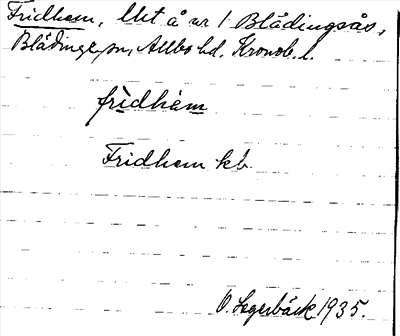 Fridhem, lht å nr 1 Blädingsås,
Blädinge sn, Allbo hd. Kronob. l.
frìdhèm
Fridhem kb
O. Segerbäck 1935.